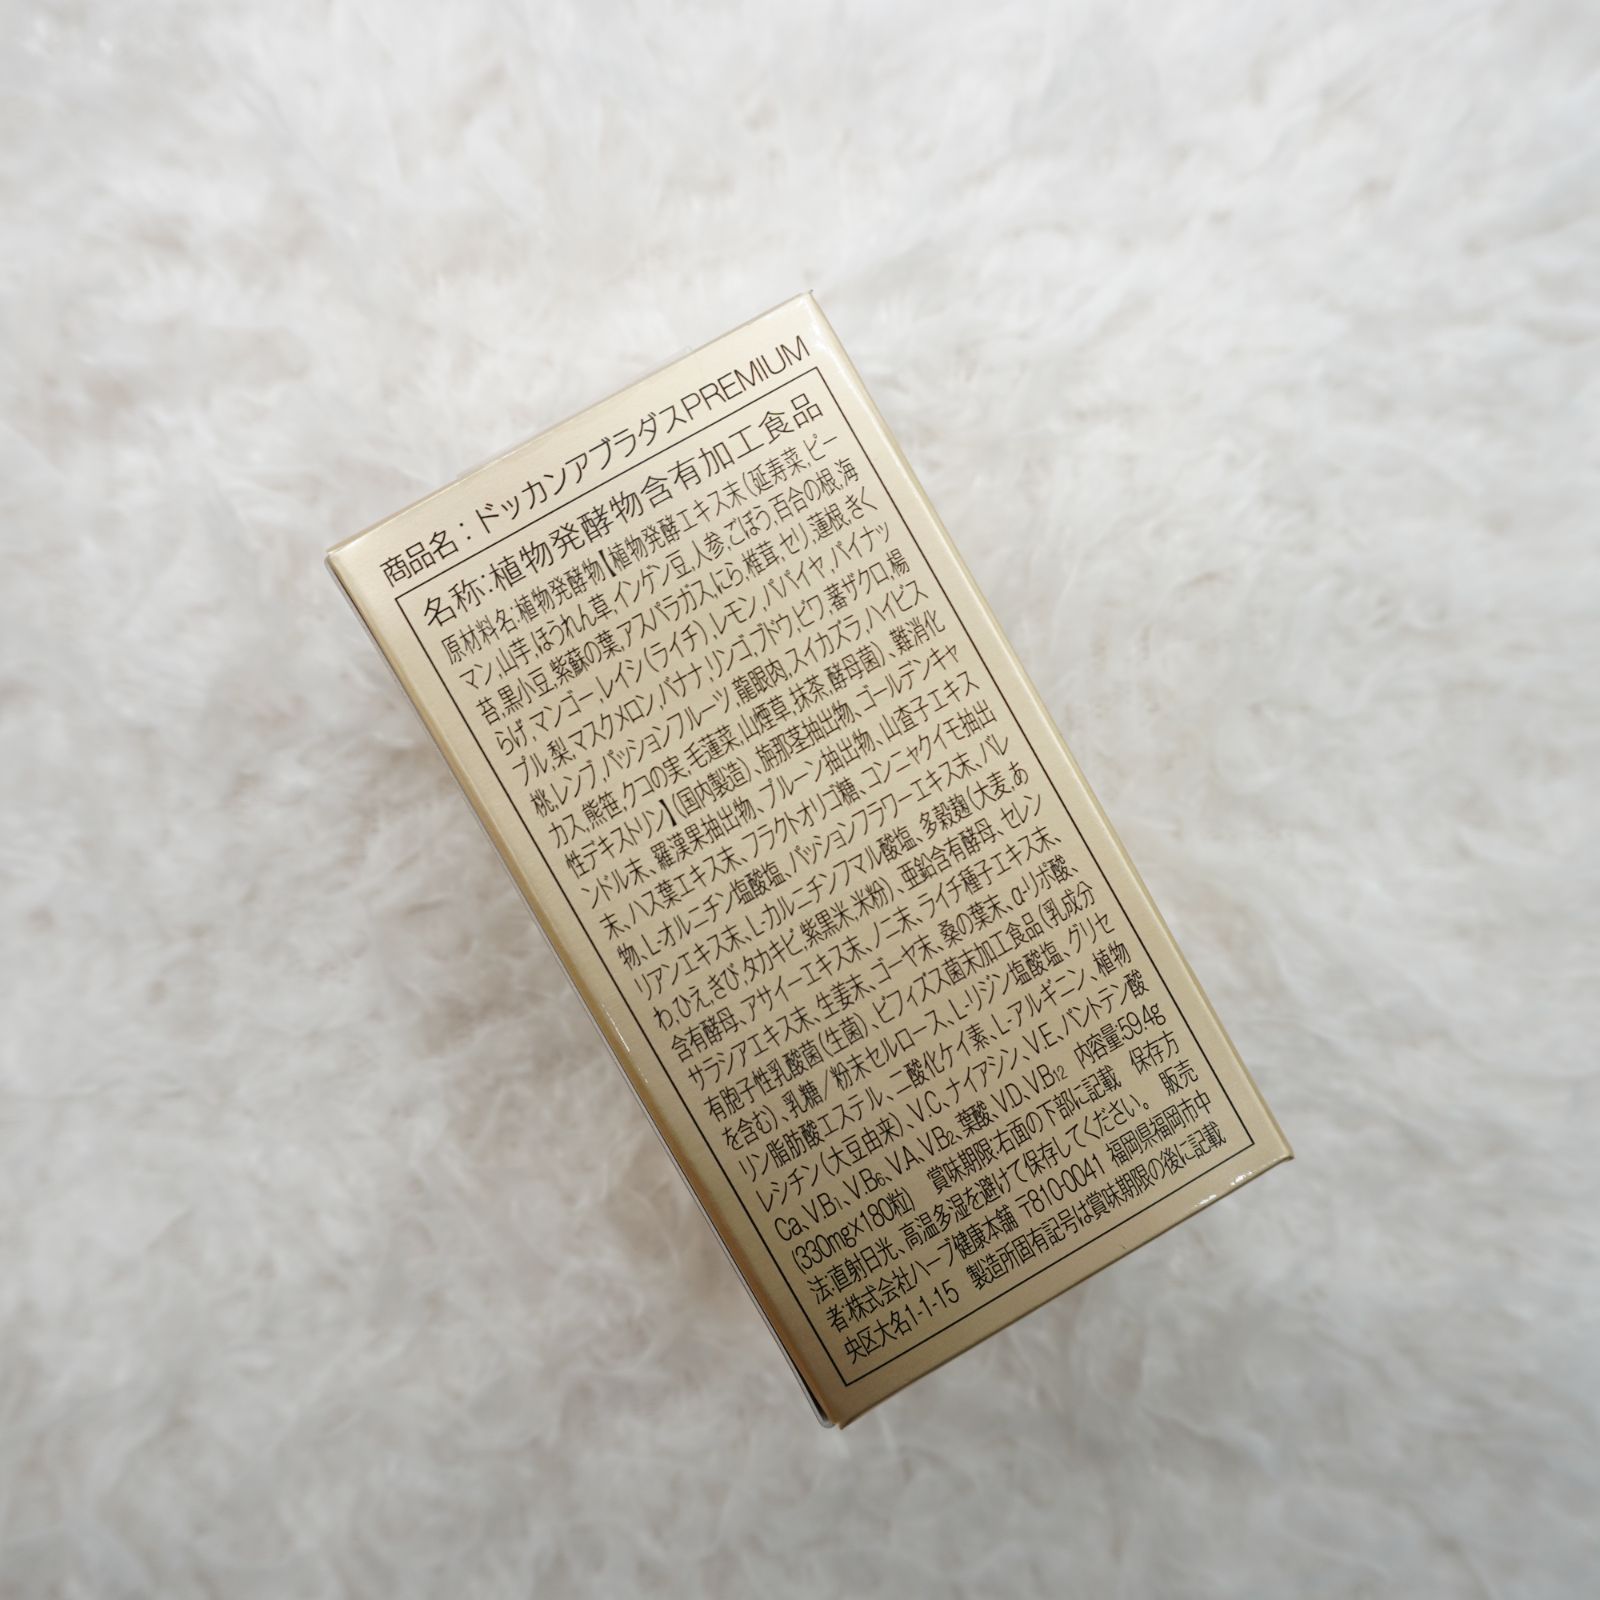 商品名：ドッカンアブラダスPREMIUM
名称:植物発酵物含有加工食品
原材料名:植物発酵物【植物発酵エキス末(延寿菜,ピー
マン,山芋,ほうれん草,インゲン豆,人参,ごぼう,百合の根,海
苔,黒小豆,紫蘇の葉,アスパラガス,にら,椎茸,セリ,蓮根,きく
らげ,マンゴー,レイシ(ライチ),レモン,パパイヤ,パイナッ
プル,梨,マスクメロン,バナナ,リンゴ,ブドウ,ビワ,蕃ザクロ,楊
桃,レンブ,パッションフルーツ,龍眼肉,スイカズラ,ハイビス
カス,熊笹,クコの実,毛蓮菜,山煙草,抹茶,酵母菌)、難消化
性デキストリン】(国内製造)、旃那茎抽出物、ゴールデンキャ
ンドル末、羅漢果抽出物、プルーン抽出物、山査子エキス
末、ハス葉エキス末、フラクトオリゴ糖、コンニャクイモ抽出
物、L-オルニチン塩酸塩、パッションフラワーエキス末、バレ
リアンエキス末、L-カルニチンフマル酸塩、多穀麹(大麦,あ
わ,ひえ,きび,タカキビ,紫黒米,米粉)、亜鉛含有酵母、セレン
含有酵母、アサイーエキス末、ノニ末、ライチ種子エキス末、
サラシアエキス末、生姜末、ゴーヤ末、桑の葉末、α-リポ酸、
有胞子性乳酸菌(生菌)、ビフィズス菌末加工食品(乳成分
を含む)、乳糖/粉末セルロース、L-リジン塩酸塩、グリセ
リン脂肪酸エステル、二酸化ケイ素、L-アルギニン、植物
レシチン(大豆由来)、V.C、ナイアシン、V.E、パントテン酸
Ca、V.B1、V.B6、V.A、V.B2、葉酸、V.D、V.B12　内容量:59.4g
(330mg×180粒)　賞味期限:右面の下部に記載　保存方
法:直射日光、高温多湿を避けて保存してください。　販売
者:株式会社ハーブ健康本舗 〒810-0041 福岡県福岡市中
央区大名1-1-15　製造所固有記号は賞味期限の後に記載